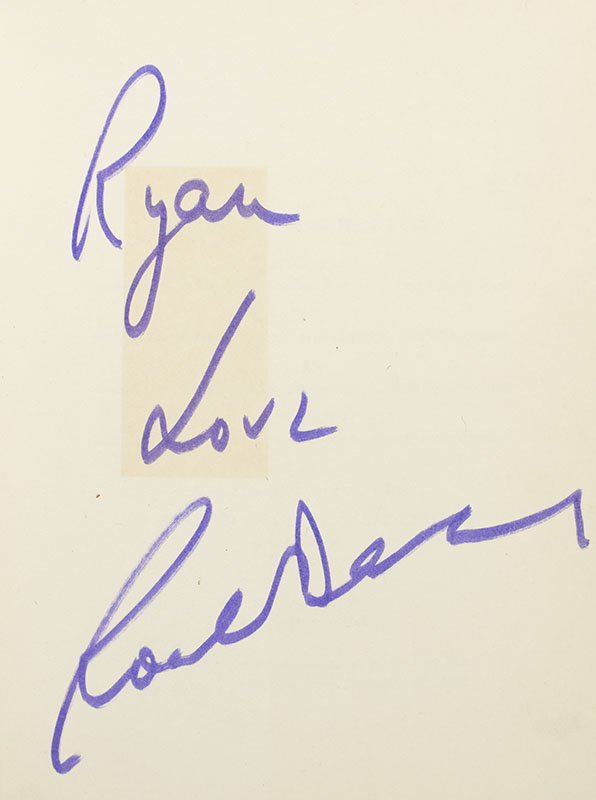 Ryan
Love
Roald Dahl